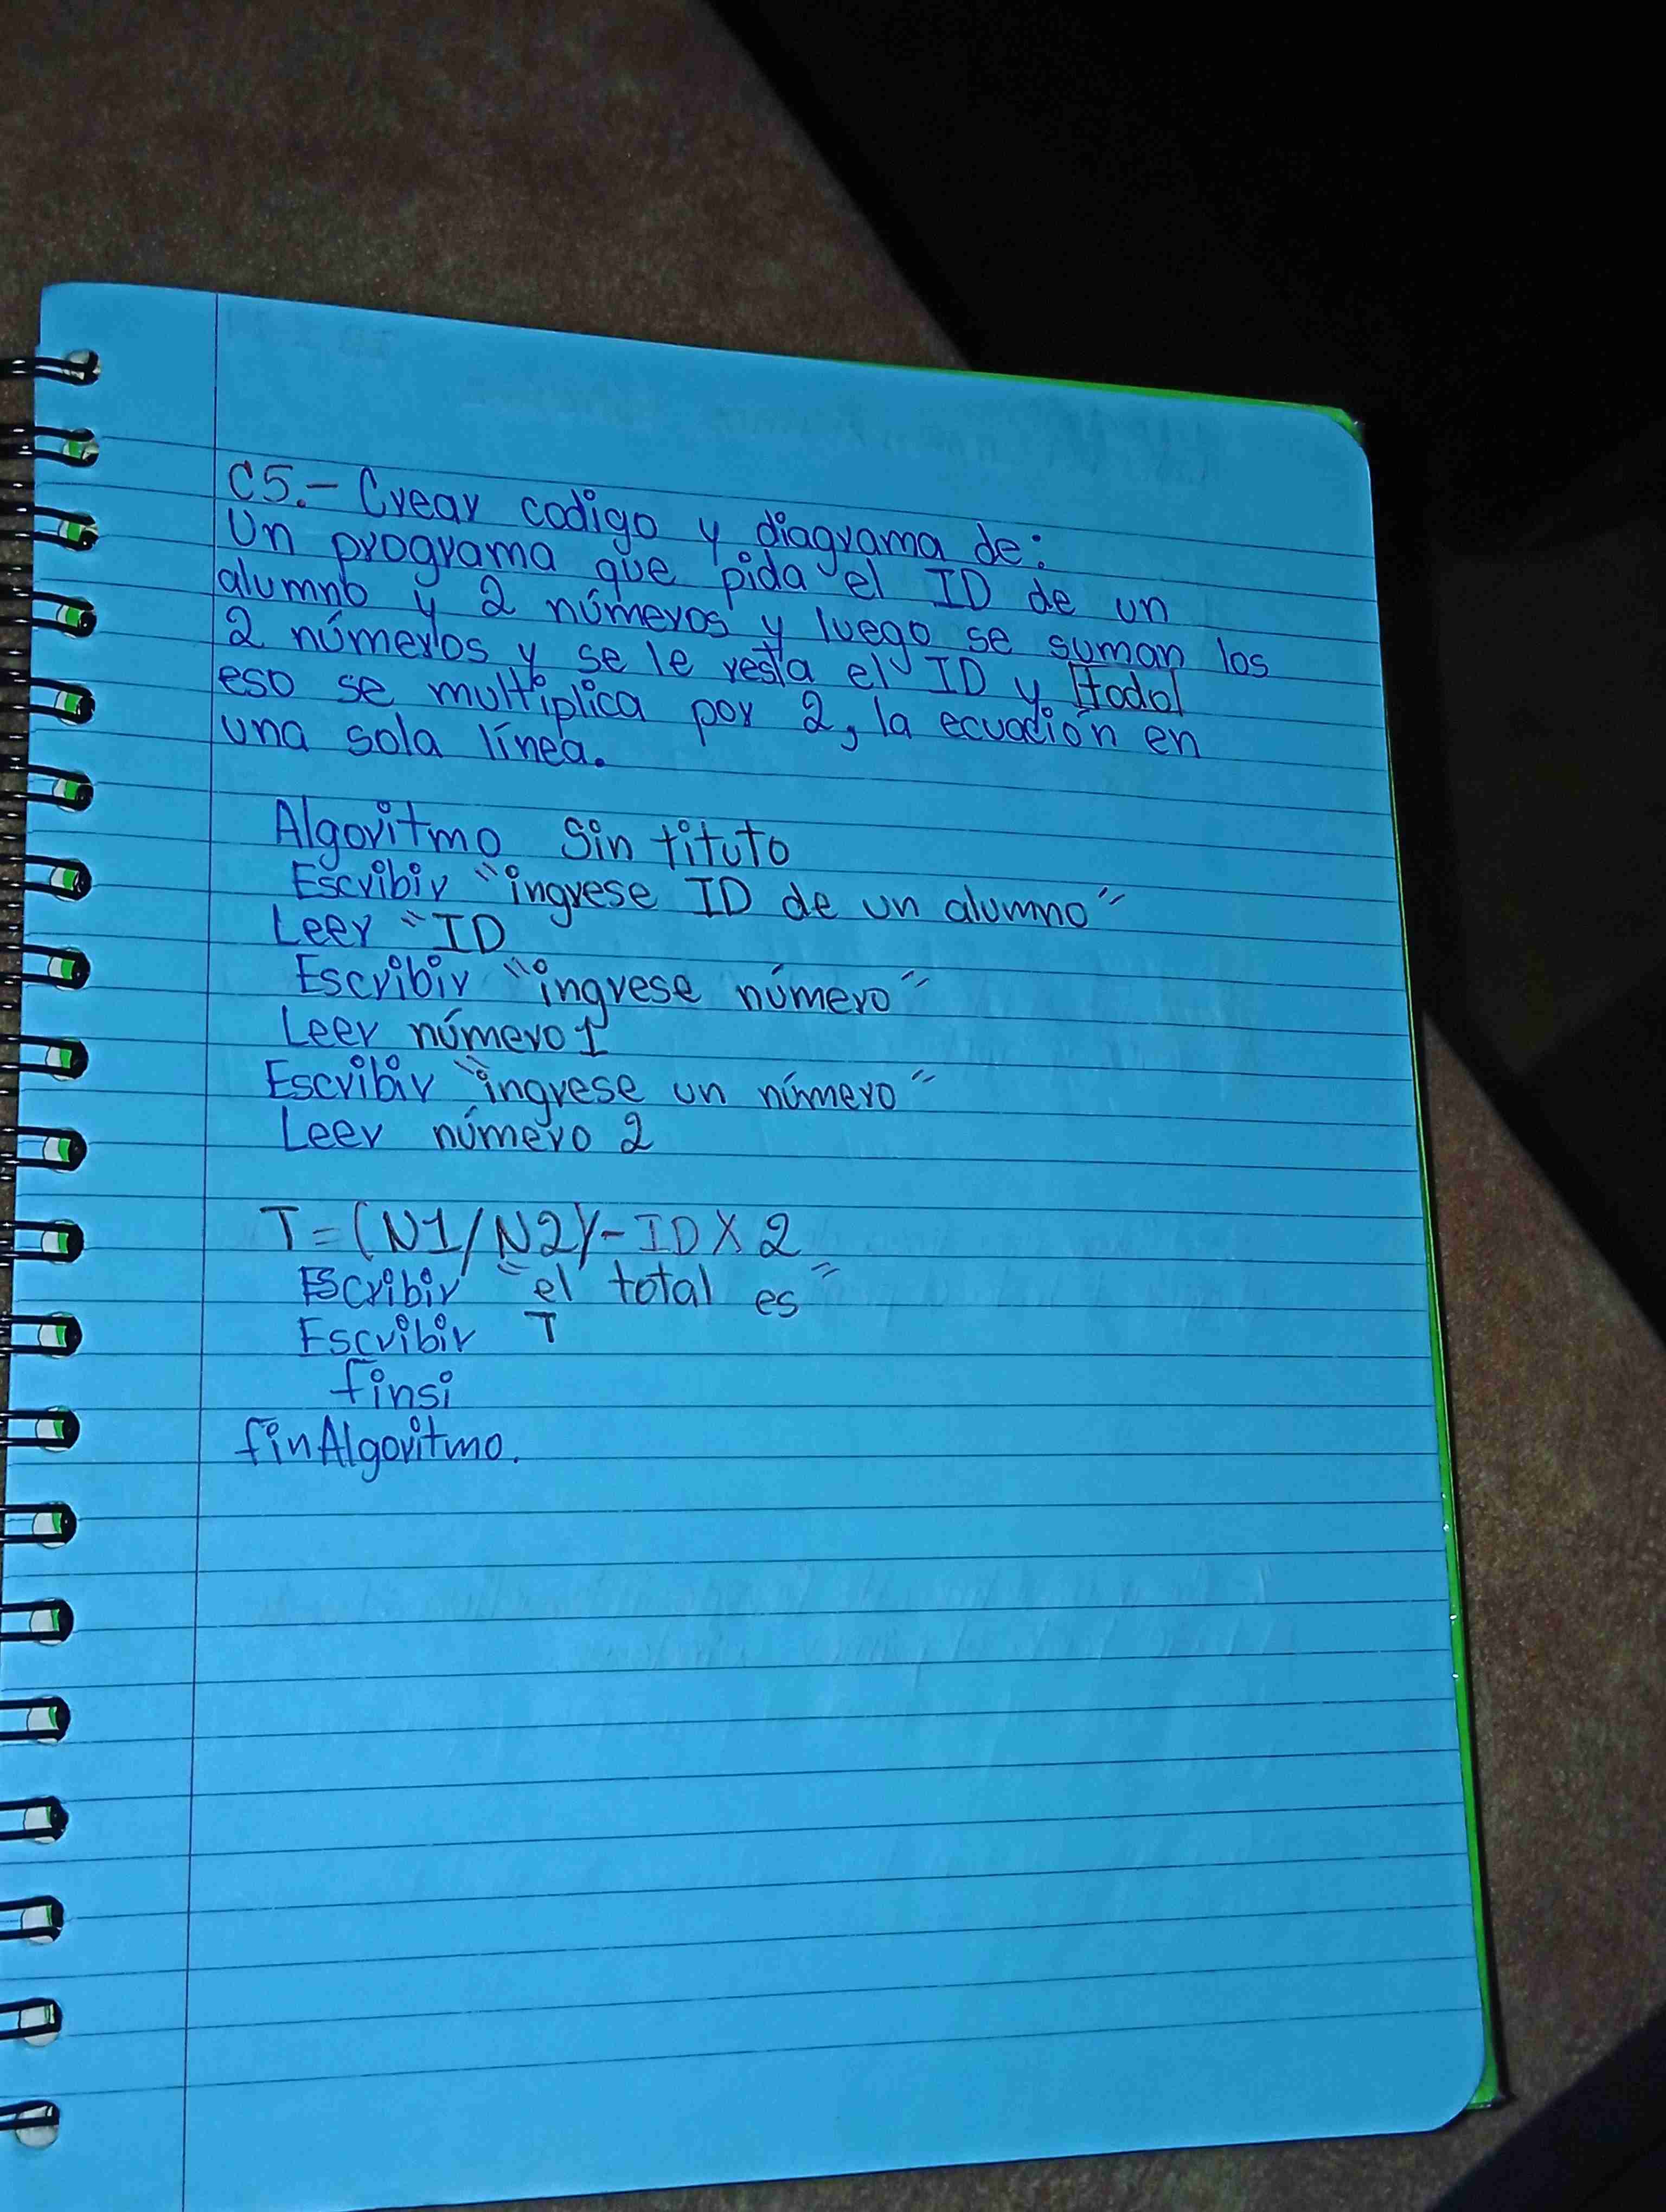 C5.- Crear codigo y diagrama de:
Un programa que pida el ID de un
alumno y 2 números y luego se suman los
2 números y se le resta el ID y todo
eso se multiplica por 2, la ecuación en
una sola línea.
Algoritmo Sin tituto
Escribir "ingrese ID de un alumno"
Leer "ID
Escribir "ingrese número"
Leer número 1
Escribir "ingrese un número"
Leer número 2
T=(N1/N2)-ID X 2
Escribir "el total es"
Escribir T
finsi
finAlgoritmo.